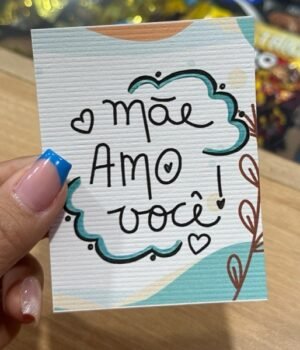 mãe
AMO
você!